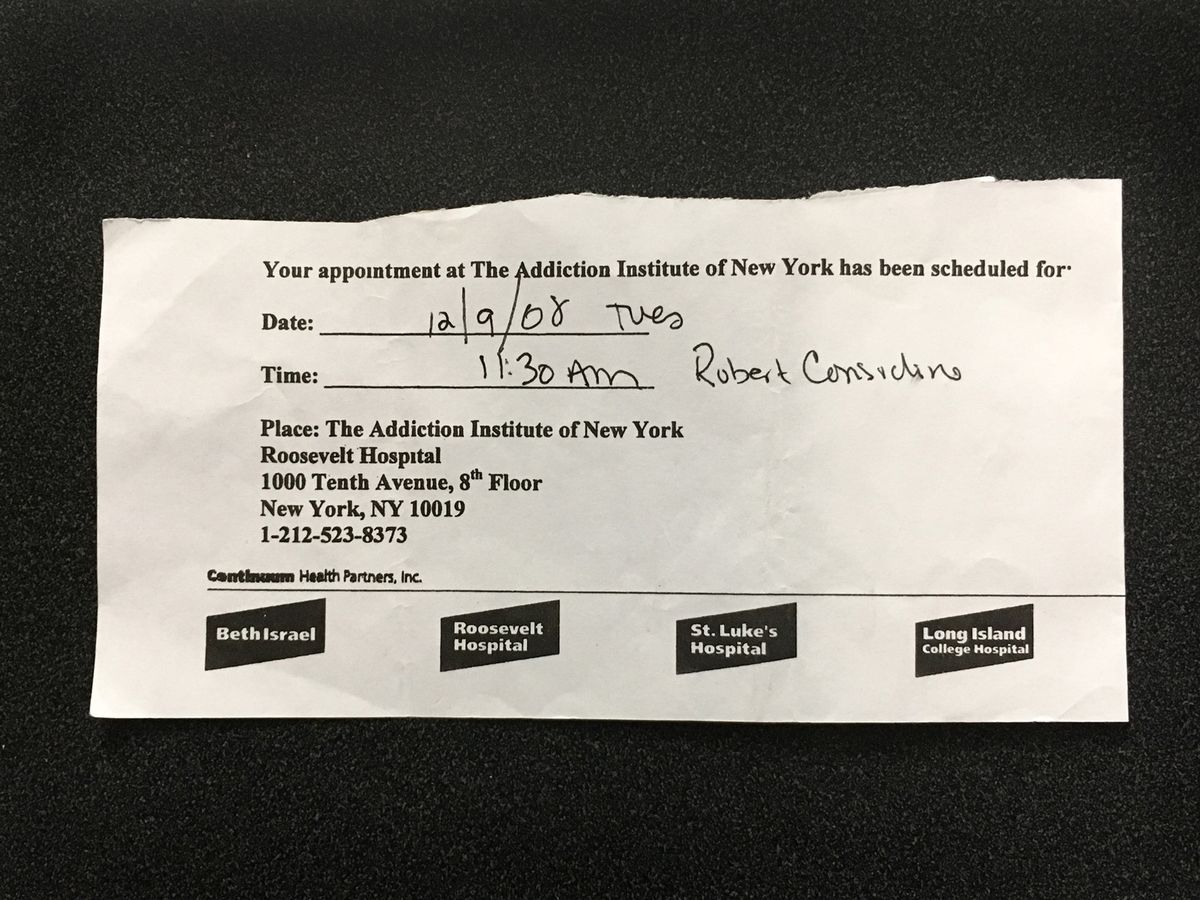 Your appointment at The Addiction Institute of New York has been scheduled for:
Date: 12/9/08 Tues
Time: 11:30 AM Robert Considine
Place: The Addiction Institute of New York
Roosevelt Hospital
1000 Tenth Avenue, 8th Floor
New York, NY 10019
1-212-523-8373
Continuum Health Partners, Inc.
Beth Israel
Roosevelt
Hospital
St. Luke's
Hospital
Long Island
College Hospital